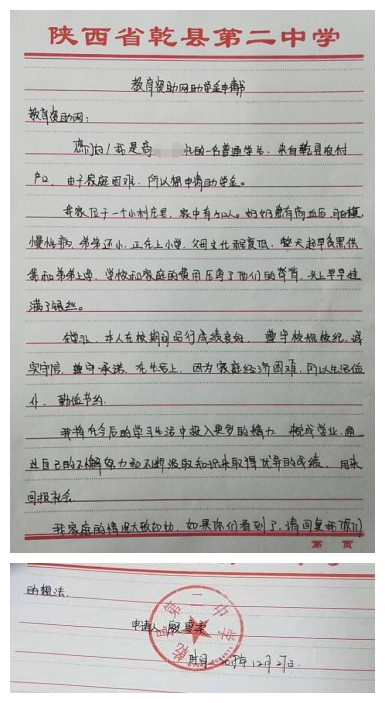 陕西省乾县第二中学
教育资助网助学金申请书
教育资助网:
您们好!我是高 化的一名普通学生,来自乾县农村
户口,由于家庭困难,所以想申请助学金。
我家位于一个小村庄里,家中有五口人。奶奶患有高血压,
慢性病,弟弟还小,正在上小学,父母文化程度低,整天起早贪黑供
我和弟弟上学,学校和家庭的费用压弯了他们的脊背,头上早早挂
满了银丝。
本人在校期间品行成绩良好,遵守校规校纪,诚
实守信,遵守承诺,在生活上,因为家庭经济困难,所以生活俭
朴,勤俭节约。
我将在今后的学习生活中投入更多的精力,完成学业,通
过自己的不懈努力和不断汲取知识来取得优异的成绩,用来
回报社会
我家庭的情况大致如此,如果你们看到了,请回复一下你们
第 页
的想法.
申请人:
时间: 年12月27日.
第二中学